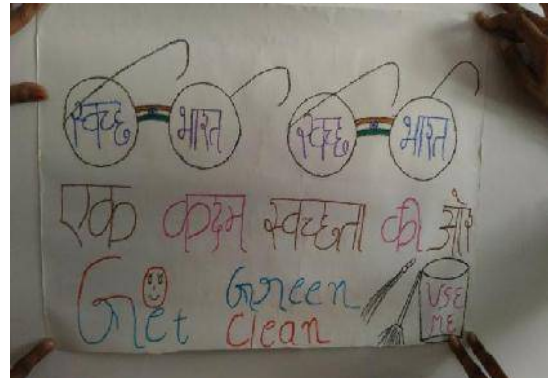 स्वच्छ भारत स्वच्छ भारत
एक कदम स्वच्छता की ओर
Get Green
Clean
USE
ME